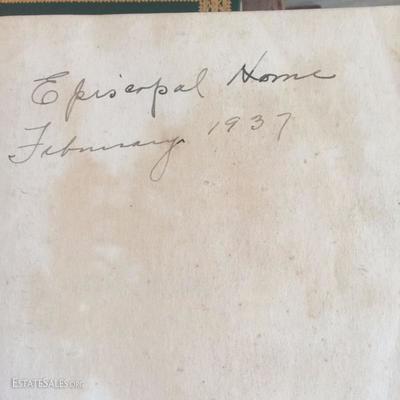 Episcopal Home
February 1937
ESTATESALES.ORG